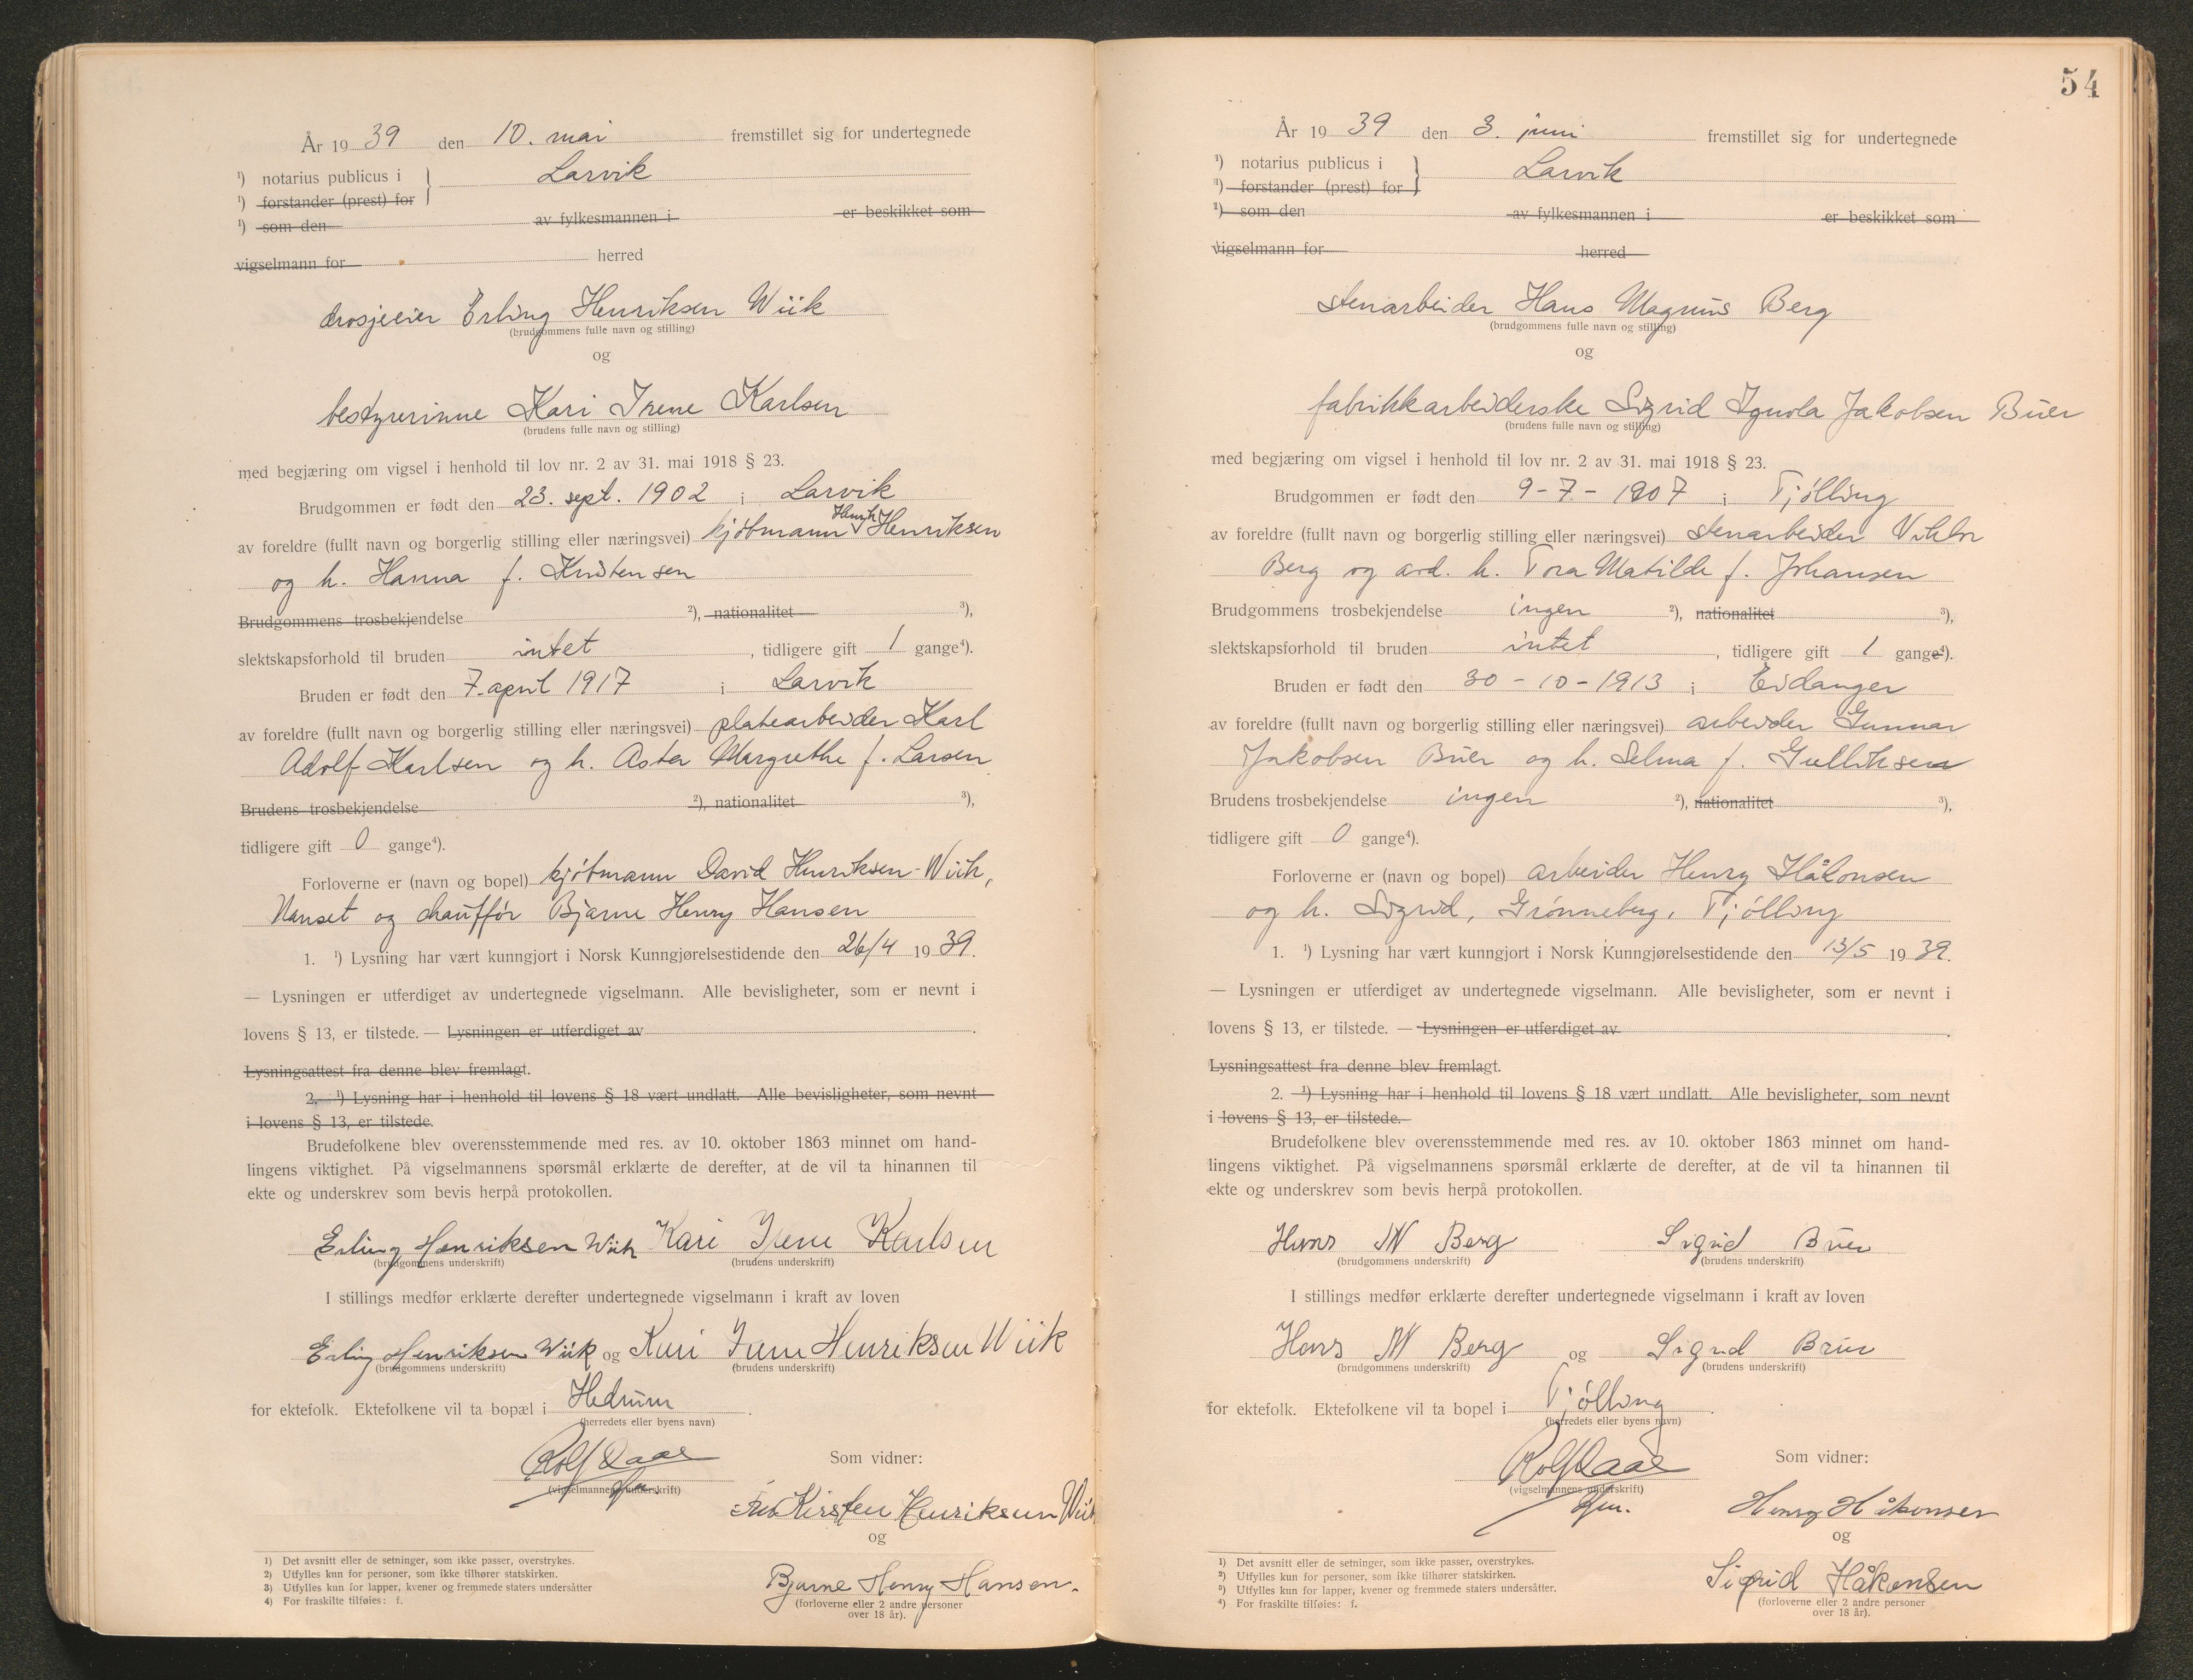 År 19 39 den 10. mai fremstillet sig for undertegnede
¹) notarius publicus i } Larvik
¹) forstander (prest) for
¹) som den av fylkesmannen i er beskikket som
vigselmann for herred
drosjeeier Erling Henriksen Wiik
(brudgommens fulle navn og stilling)
og
bestyrerinne Kari Irene Karlsen
(brudens fulle navn og stilling)
med begjæring om vigsel i henhold til lov nr. 2 av 31. mai 1918 § 23.
Brudgommen er født den 23. sept. 1902 i Larvik
av foreldre (fullt navn og borgerlig stilling eller næringsvei) kjøbmann Henrik Henriksen
og h. Hanna f. Kristensen
Brudgommens trosbekjendelse ²), nationalitet ³),
slektskapsforhold til bruden intet , tidligere gift 1 gange⁴).
Bruden er født den 7. april 1917 i Larvik
av foreldre (fullt navn og borgerlig stilling eller næringsvei) platearbeider Karl
Adolf Karlsen og h. Asta Margrethe f. Larsen
Brudens trosbekjendelse ²), nationalitet ³),
tidligere gift 0 gange⁴).
Forloverne er (navn og bopel) kjøbmann David Henriksen-Wiik,
Nanset og chauffør Bjarne Henry Hansen
1. ¹) Lysning har vært kunngjort i Norsk Kunngjørelsestidende den 26/4 19 39.
— Lysningen er utferdiget av undertegnede vigselmann. Alle bevisligheter, som er nevnt i
lovens § 13, er tilstede. — Lysningen er utferdiget av .
Lysningsattest fra denne blev fremlagt.
2. ¹) Lysning har i henhold til lovens § 18 vært undlatt. Alle bevisligheter, som nevnt
i lovens § 13, er tilstede.
Brudefolkene blev overensstemmende med res. av 10. oktober 1863 minnet om hand-
lingens viktighet. På vigselmannens spørsmål erklærte de derefter, at de vil ta hinannen til
ekte og underskrev som bevis herpå protokollen.
Erling Henriksen Wiik Kari Irene Karlsen
(brudgommens underskrift) (brudens underskrift)
I stillings medfør erklærte derefter undertegnede vigselmann i kraft av loven
Erling Henriksen Wiik og Kari Irene Henriksen Wiik
(brudgommens underskrift) (brudens underskrift)
for ektefolk. Ektefolkene vil ta bopæl i Hedrum .
(herredets eller byens navn)
Rolf Daae Som vidner:
(vigselmannens underskrift)
Kirsten Henriksen Wiik
og
Bjarne Henry Hansen.
(forloverne eller 2 andre personer
over 18 år).
1) Det avsnitt eller de setninger, som ikke passer, overstrykes.
2) Utfylles kun for personer, som ikke tilhører statskirken.
3) Utfylles kun for lapper, kvener og fremmede staters undersåtter
4) For fraskilte tilføies: f.
54
År 19 39 den 3. juni fremstillet sig for undertegnede
¹) notarius publicus i } Larvik
¹) forstander (prest) for
¹) som den av fylkesmannen i er beskikket som
vigselmann for herred
stenarbeider Hans Magnus Berg
(brudgommens fulle navn og stilling)
og
fabrikkarbeiderske Sigrid Ignola Jakobsen Buer
(brudens fulle navn og stilling)
med begjæring om vigsel i henhold til lov nr. 2 av 31. mai 1918 § 23.
Brudgommen er født den 9-7-1907 i Tjølling
av foreldre (fullt navn og borgerlig stilling eller næringsvei) stenarbeider Viktor
Berg og avd. h. Tora Matilde f. Johansen
Brudgommens trosbekjendelse ingen ²), nationalitet ³),
slektskapsforhold til bruden intet , tidligere gift 1 gange⁴).
Bruden er født den 30-10-1913 i Eidanger
av foreldre (fullt navn og borgerlig stilling eller næringsvei) arbeider Gunnar
Jakobsen Buer og h. Selma f. Gulliksen
Brudens trosbekjendelse ingen ²), nationalitet ³),
tidligere gift 0 gange⁴).
Forloverne er (navn og bopel) arbeider Henry Håkonsen
og h. Sigrid, Grønneberg, Tjølling
1. ¹) Lysning har vært kunngjort i Norsk Kunngjørelsestidende den 13/5 19 39.
— Lysningen er utferdiget av undertegnede vigselmann. Alle bevisligheter, som er nevnt i
lovens § 13, er tilstede. — Lysningen er utferdiget av .
Lysningsattest fra denne blev fremlagt.
2. ¹) Lysning har i henhold til lovens § 18 vært undlatt. Alle bevisligheter, som nevnt
i lovens § 13, er tilstede.
Brudefolkene blev overensstemmende med res. av 10. oktober 1863 minnet om hand-
lingens viktighet. På vigselmannens spørsmål erklærte de derefter, at de vil ta hinannen til
ekte og underskrev som bevis herpå protokollen.
Hans M Berg Sigrid Buer
(brudgommens underskrift) (brudens underskrift)
I stillings medfør erklærte derefter undertegnede vigselmann i kraft av loven
Hans M Berg og Sigrid Buer
(brudgommens underskrift) (brudens underskrift)
for ektefolk. Ektefolkene vil ta bopel i Tjølling .
(herredets eller byens navn)
Rolf Daae Som vidner:
(vigselmannens underskrift)
Henry Håkonsen
og
Sigrid Håkonsen
(forloverne eller 2 andre personer
over 18 år).
¹) Det avsnitt eller de setninger, som ikke passer, overstrykes.
²) Utfylles kun for personer, som ikke tilhører statskirken.
³) Utfylles kun for lapper, kvener og fremmede staters undersåtter.
⁴) For fraskilte tilføies: f.